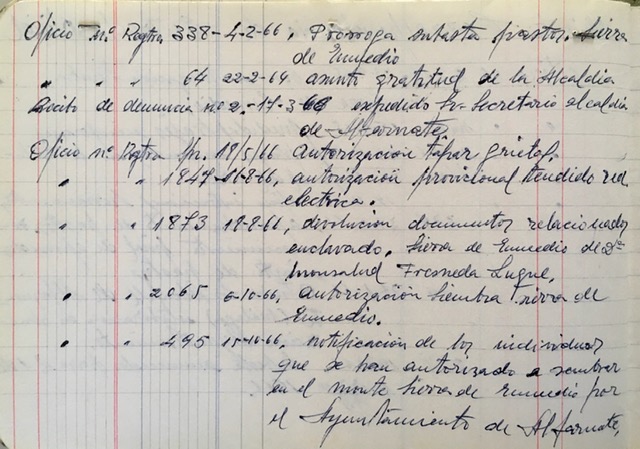 Oficio nº Regtro 338-4-2-66, Prorroga subasta pastos. Sierra
de Enmedio
" " 64 22-2-64 asunto gratitud de la Alcaldia
Recibo de denuncia nº 2.-17-3-66 expedido Sr. Secretario alcaldia
de Alfarnate,
Oficio nº Regtro 18/5/66 autorización tapar grietas.
" " 1847-16-8-66, autorización provicional tendido red
electrica.
" " 1873 18-8-66, devolución documentos relacionados
enclavado, Sierra de Enmedio de Dª
Monsalud Fresneda Luque,
" " 2065 6-10-66, autorización Siembra Sierra de
Enmedio.
" " 495 15-10-66, notificación de los individuos
que se han autorizado a sembrar
en el monte Sierra de Enmedio por
el Ayuntamiento de Alfarnate,